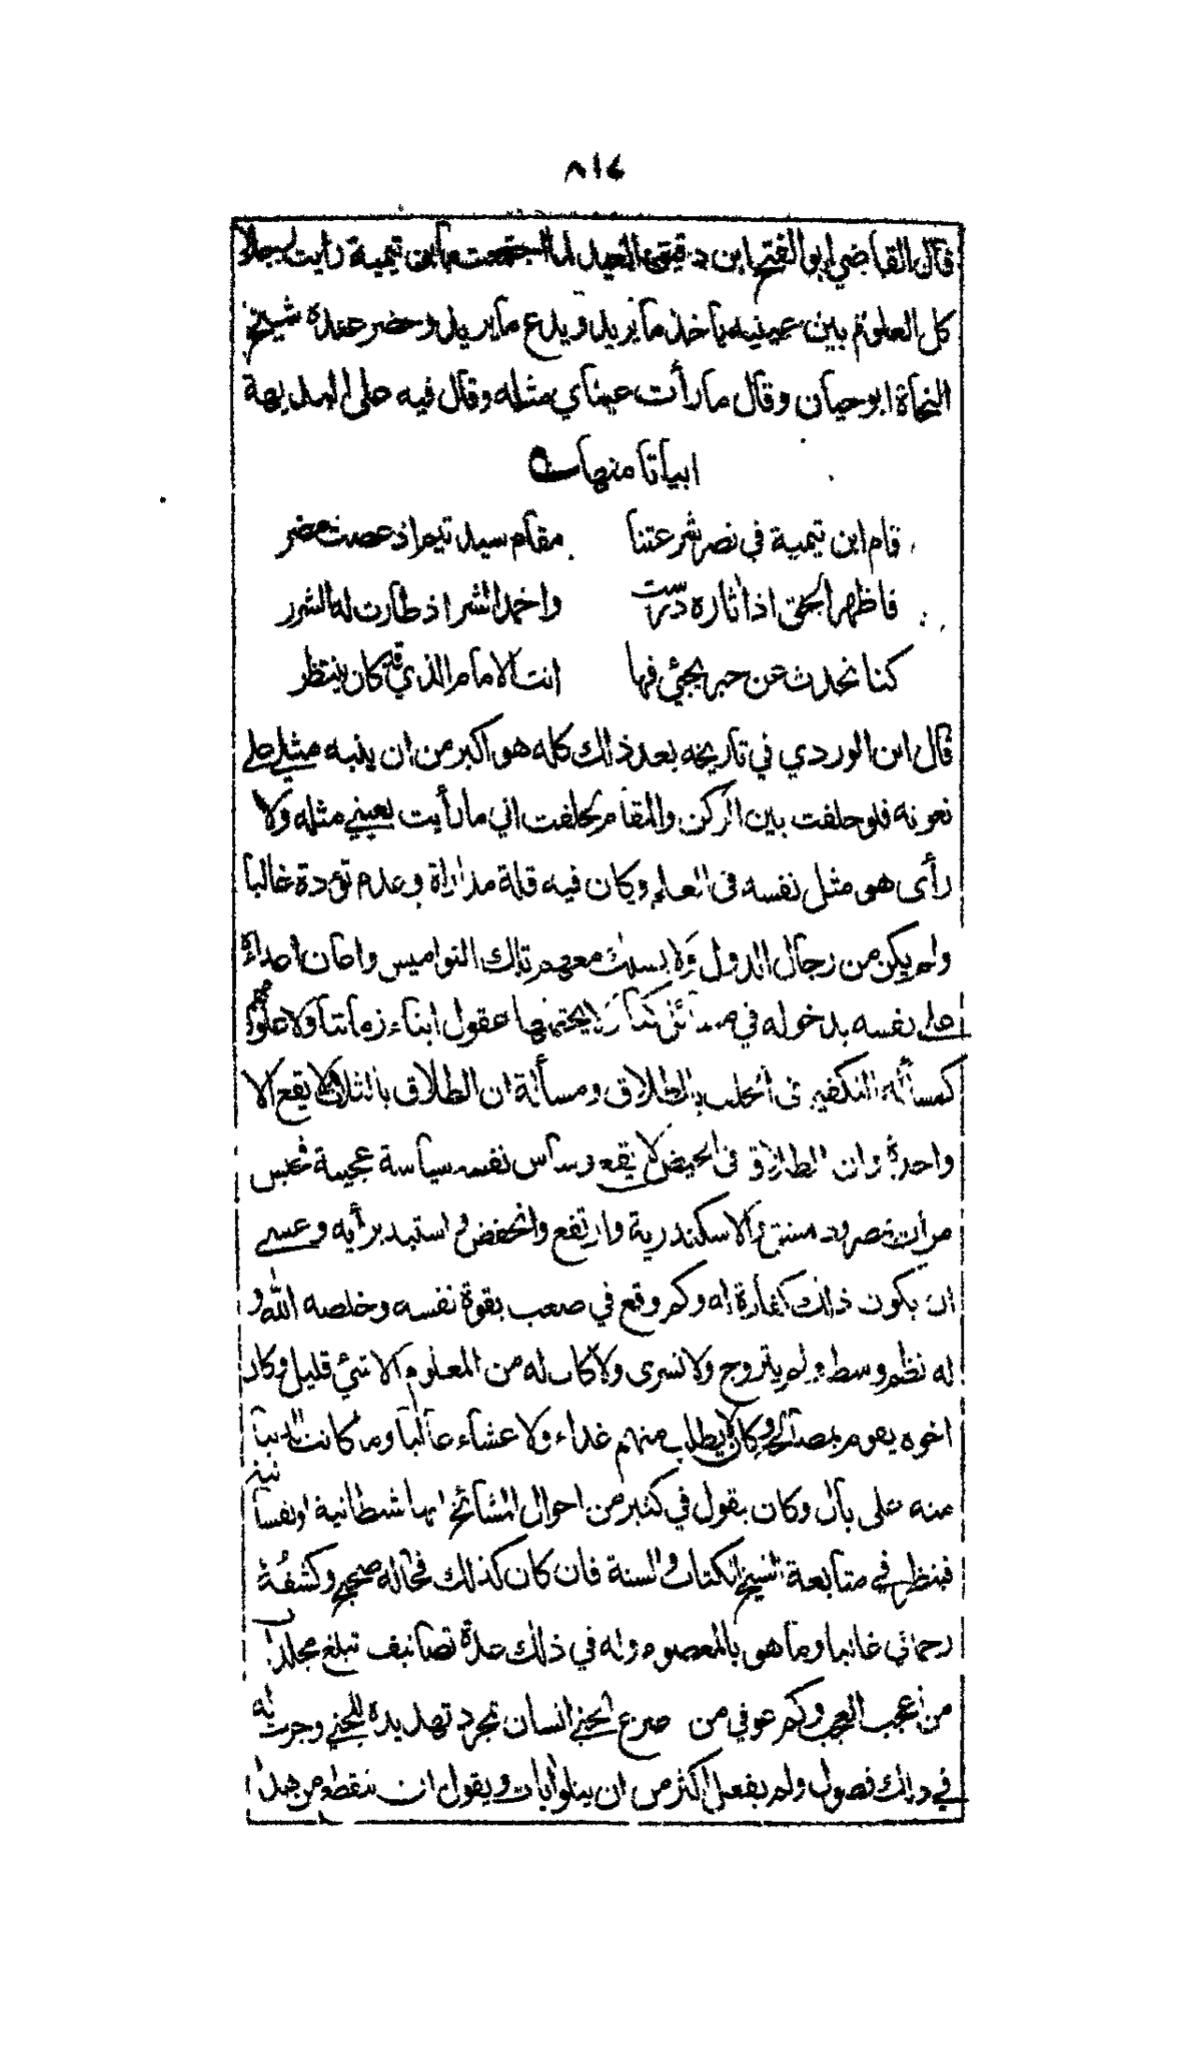 ٨١٤
قال القاضي ابو الفتح ابن دقيق العيد لما اجتمعت بابن تيمية رايت رجلا
كل العلوم بين عينيه ياخذ ما يريد ويدع ما يريد وحضر عنده شيخ
النحاة ابو حيان وقال ما رأت عيناي مثله وقال فيه على البديهة
ابياتا منها
قام ابن تيمية في نصر شرعتنا مقام سيد تيم اذ عصت مضر
فاظهر الحق اذ اثاره درست واخمد الشر اذ طارت له الشرر
كنا نحدث عن حبر يجئ فها انت الامام الذي قد كان ينتظر
قال ابن الوردي في تاريخه بعد ذلك كله هو اكبر من ان ينبه مثلي على
نعوته فلو حلفت بين الركن والمقام لحلفت اني ما رأيت بعيني مثله ولا
رأى هو مثل نفسه في العلم وكان فيه قلة مداراة وعدم تؤدة غالبا
ولم يكن من رجال الدول ولا يسلك معهم تلك النواميس واعان اعداءه
على نفسه بدخوله في مسائل كبار لا يحتملها عقول ابناء زماننا ولا علومهم
كمسألة التكفير في الحلف بالطلاق ومسألة ان الطلاق بالثلاث لا يقع الا
واحدة وان الطلاق في الحيض لا يقع وساس نفسه سياسة عجيبة فحبس
مرات بمصر ودمشق والاسكندرية وارتفع وانخفض واستبد برأيه وعسى
ان يكون ذلك كفارة له وكم وقع في صعب بقوة نفسه وخلصه الله و
له نظم وسط ولم يتزوج ولا تسرى ولا كان له من المعلوم الا شئ قليل وكان
اخوه يقوم بمصالحه وكان لا يطلب منهم غداء ولا عشاء غالبا وما كانت الدنيا
منه على بال وكان يقول في كثير من احوال المشائخ انها شطانية او نفسانية
فينظر في متابعة الشيخ الكتاب والسنة فان كان كذلك فحاله صحيح وكشفه
رحماني غالبا وما هو بالمعصوم وله في ذلك عدة تصانيف تبلغ مجلدا
من أعجب العجب وكم عوفي من صرع الجني انسان بمجرد تهديده للجني وجرت له
في ذلك فصول ولم يفعل اكثر من ان يتلو آيات ويقول ان تنقطع من هذا